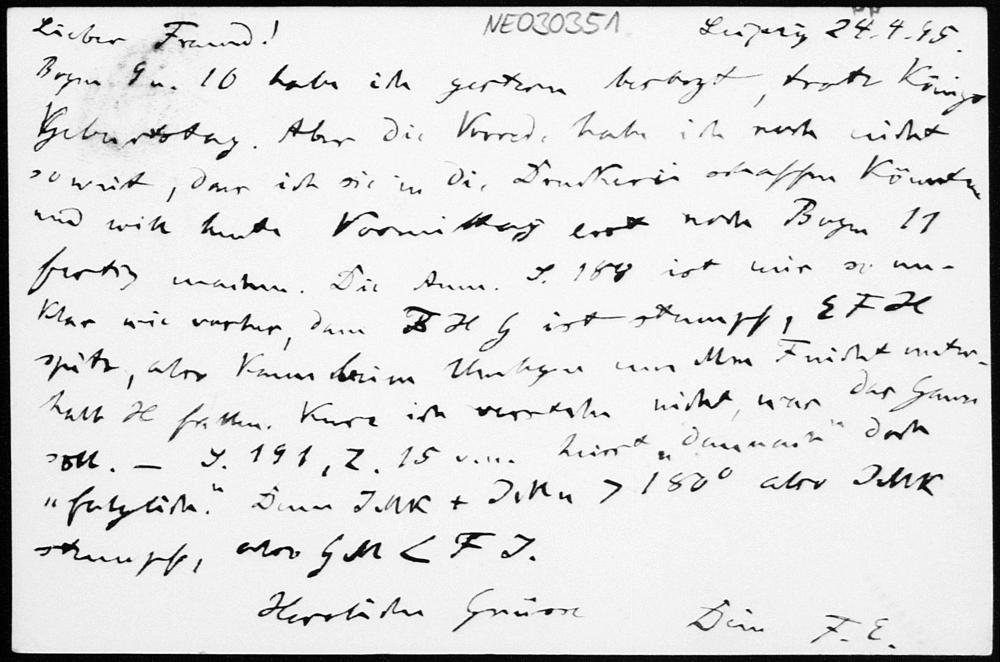 NE030351
Lieber Freund! Leipzig 24.4.95.
Bogen 9 u. 10 habe ich gestern besorgt, trotz Königs
Geburtstag. Aber die Vorrede habe ich noch nicht
so weit, dass ich sie in die Druckerei schaffen könnte
und will heute Vormittag erst noch Bogen 11
fertig machen. Die Anm. S. 188 ist mir so un-
klar wie vorher, denn BHG ist stumpf, EFH
spitz, also kann beim Umlegen um Mm F nicht unter-
halb H fallen. Kurz ich verstehe nicht, was das Ganze
soll. — S. 191, Z. 15 v.u. heisst „demnach" doch
„folglich." Denn JMK + JMm > 180° also JMK
stumpf, also GM < FJ.
Herzliche Grüsse
Dein F. E.